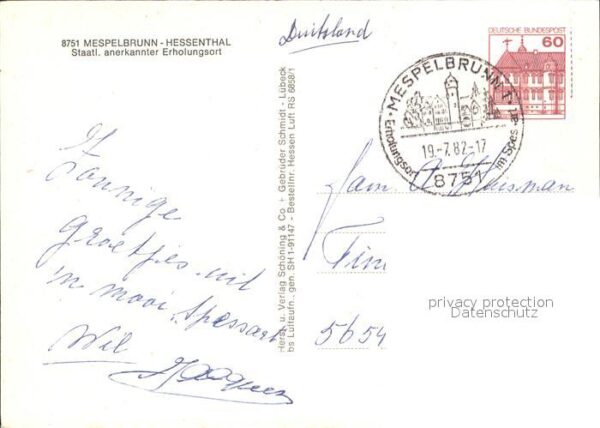 8751 MESPELBRUNN - HESSENTHAL
Staatl. anerkannter Erholungsort
Duitsland
DEUTSCHE BUNDESPOST
60
MESPELBRUNN 1
Erholungsort im Spessart
19.-7.82-17
8751
Herst. u. Verlag Schöning & Co + Gebrüder Schmidt - Lübeck
bs Luftaufn., gen. SH 1-91147 - Bestellnr. Hessen Luft RS 6858/1
Zonnige
groetjes uit
'n mooi Spessart
Wil
Fam. A. Huisman
5654
privacy protection
Datenschutz